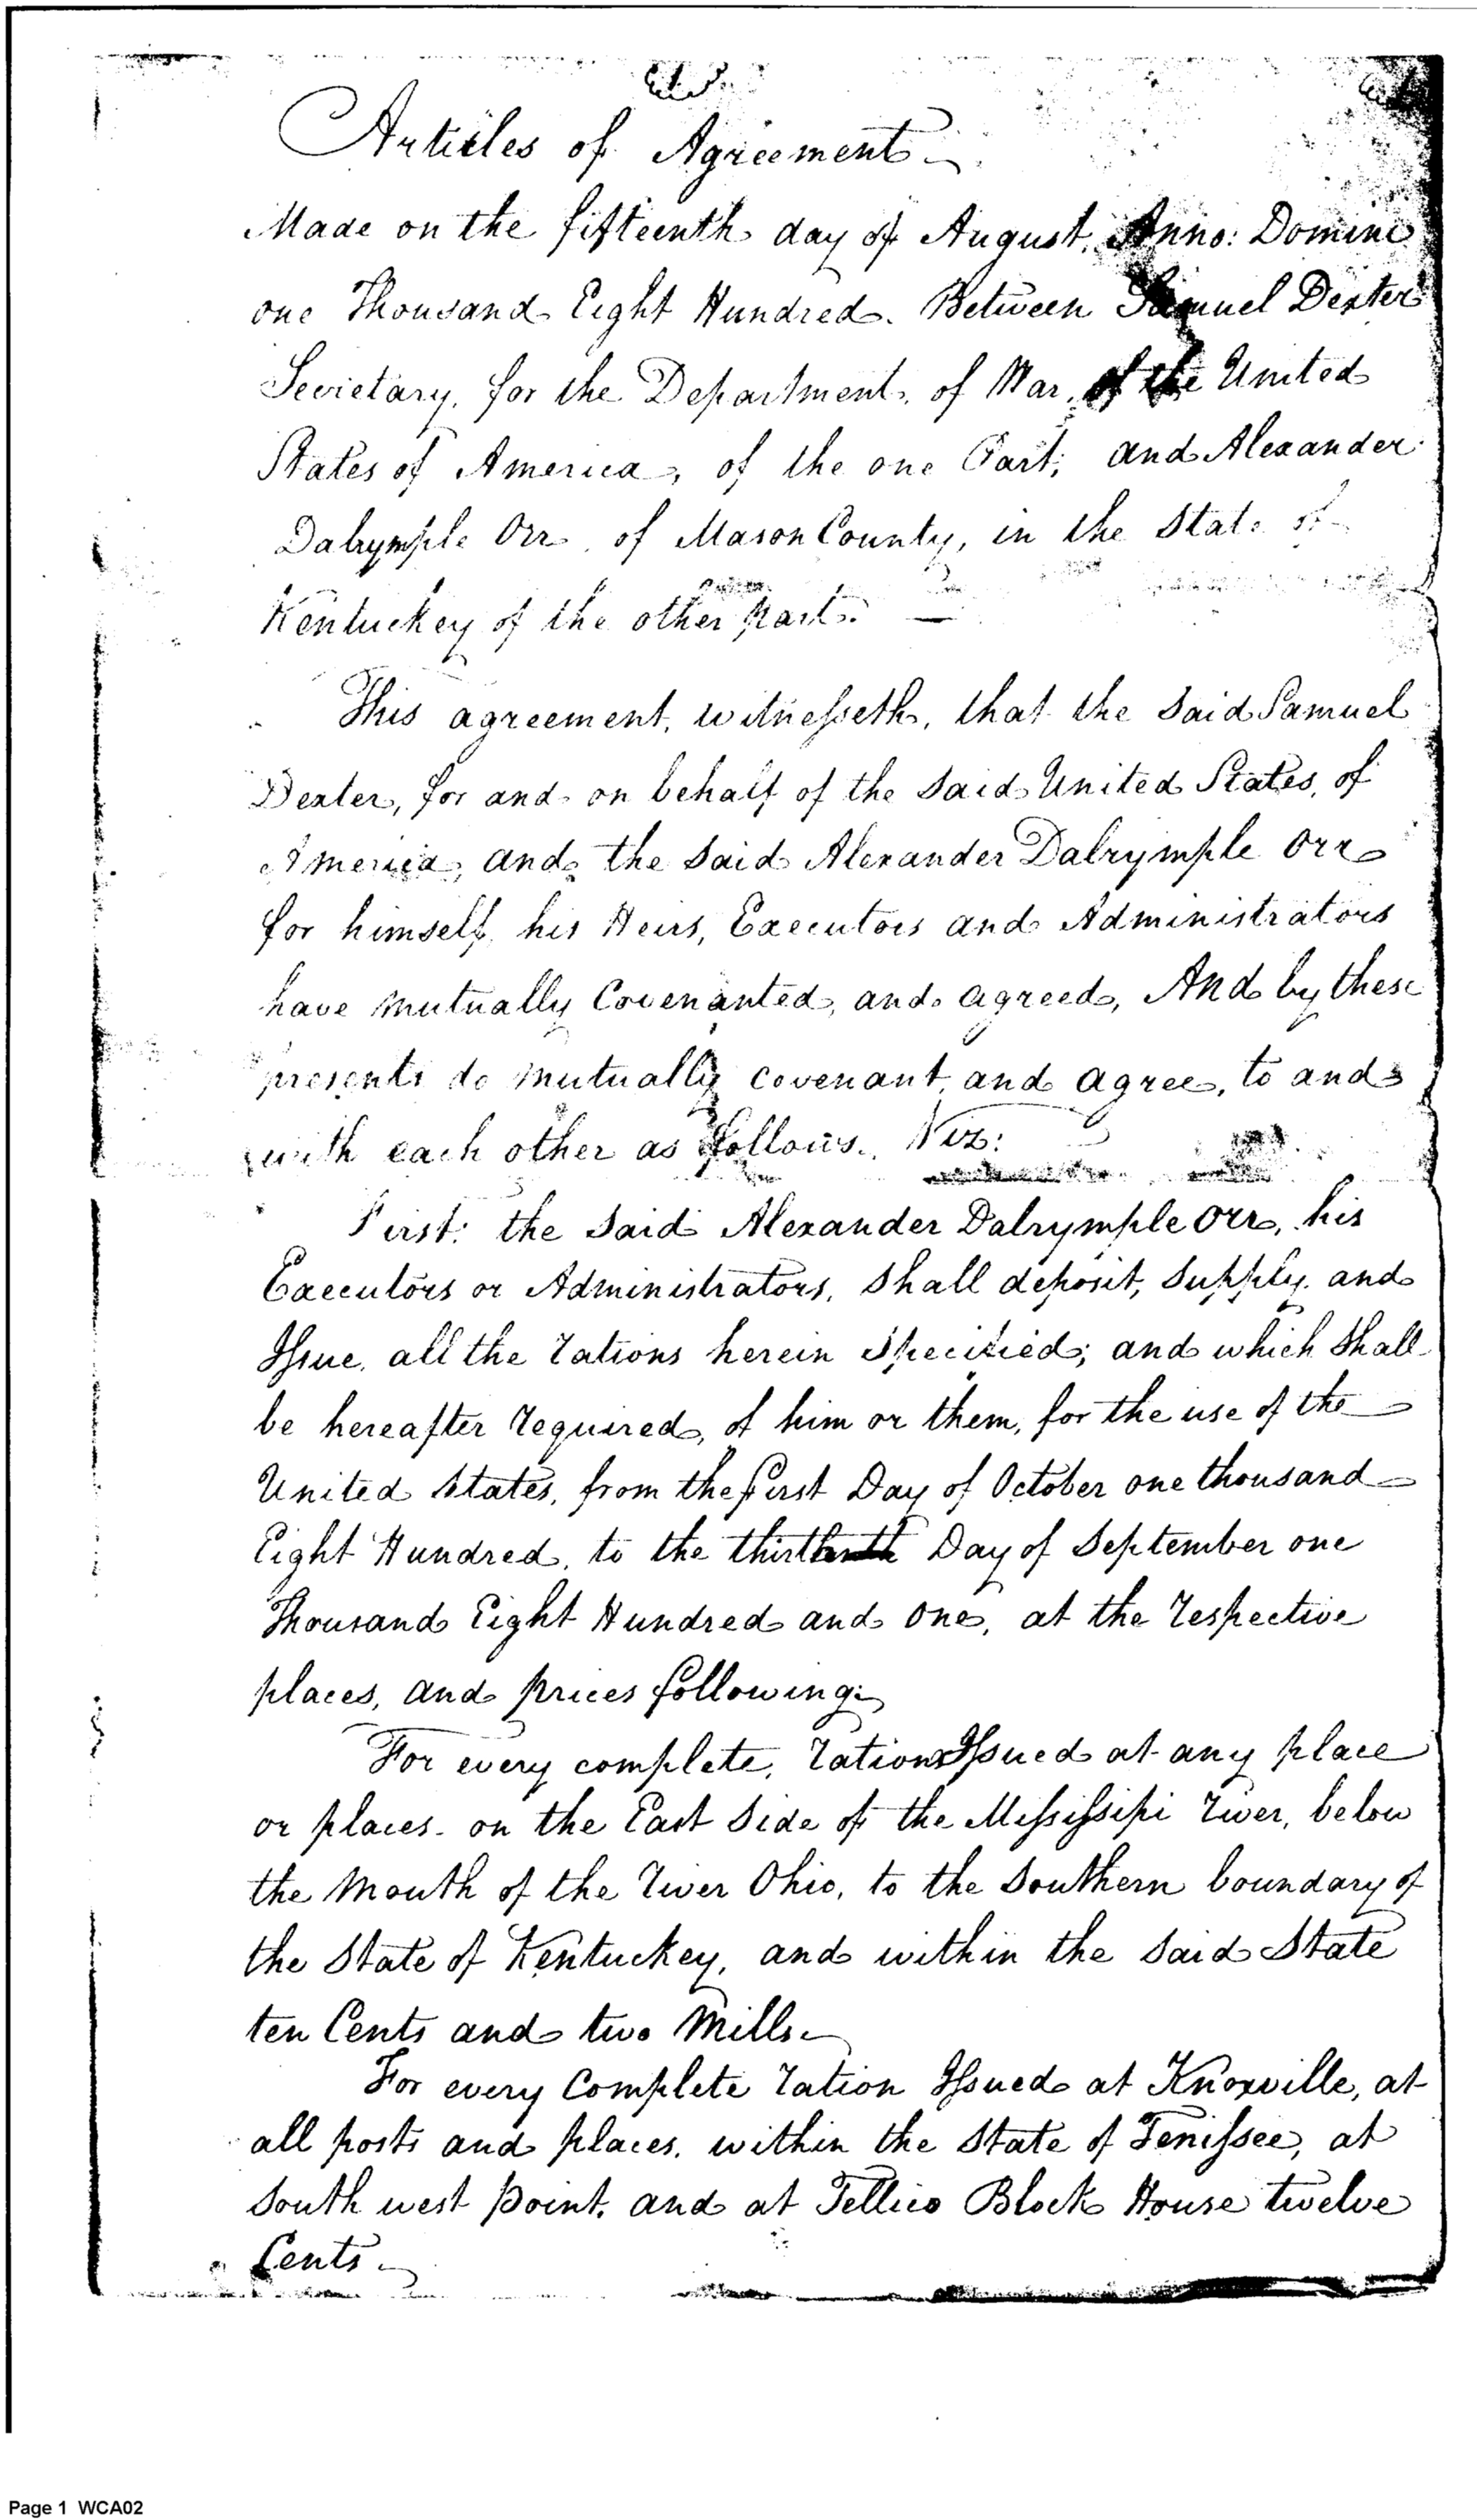 Articles of Agreement
Made on the fifteenth day of August, Anno: Domini
one Thousand Eight Hundred. Between Samuel Dexter
Secretary, for the Department, of War, of the United
States of America, of the one Part; and Alexander
Dalrymple Orr, of Mason County, in the State of
Kentuckey of the other part. —
This agreement, witnesseth, that the said Samuel
Dexter, for and on behalf of the said United States, of
America, and the said Alexander Dalrymple Orr
for himself, his Heirs, Executors and Administrators
have mutually Covenanted, and agreed, And by these
presents do mutually covenant, and agree, to and
with each other as follows. Viz:
First: the said Alexander Dalrymple Orr, his
Executors or Administrators, shall deposit, supply, and
Issue, all the rations herein specified; and which shall
be hereafter required, of him or them, for the use of the
United States, from the first Day of October one thousand
Eight Hundred, to the Day of September one
Thousand Eight Hundred and one, at the respective
places, and prices following:
For every complete, ration Issued at any place
or places on the East side of the Missisipi river, below
the Mouth of the river Ohio, to the southern boundary of
the State of Kentuckey, and within the said State
ten Cents and two Mills.
For every Complete ration Issued at Knoxville, at
all posts and places, within the State of Tenissee, at
South west point, and at Tellico Block House twelve
Cents.
Page 1 WCA02